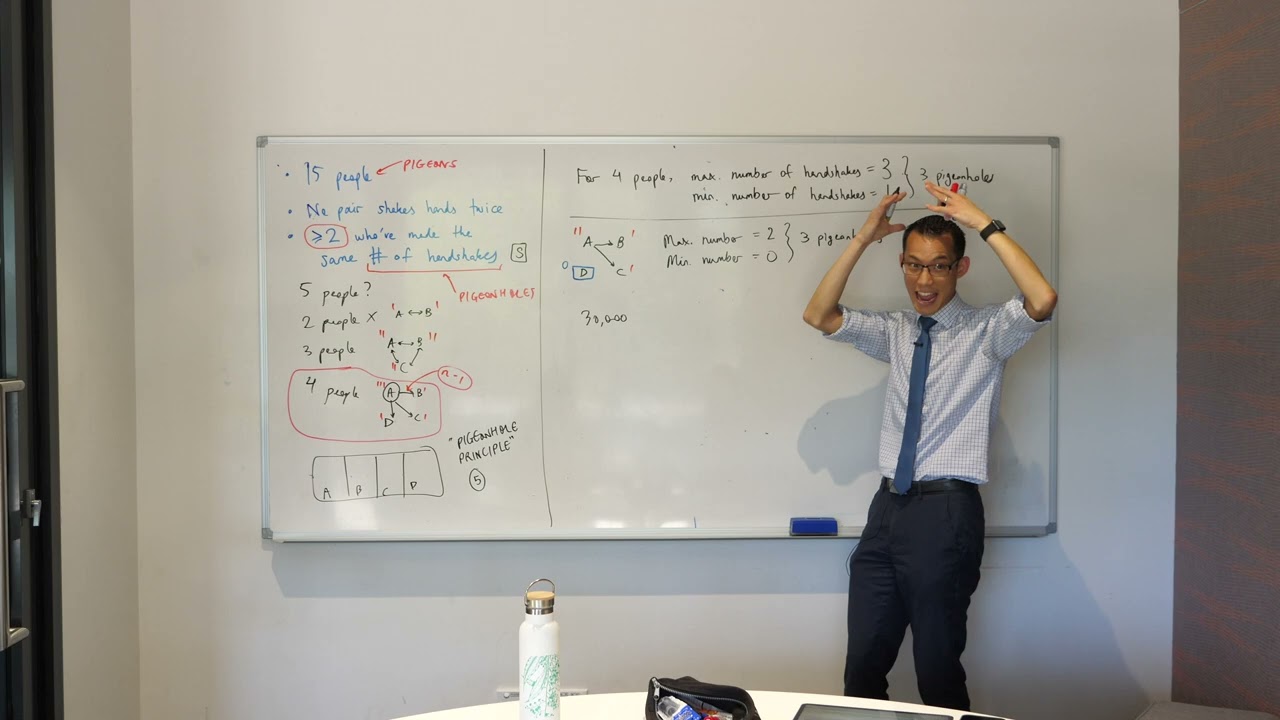 • 15 people PIGEONS
• No pair shakes hands twice
• ≥2 who've made the
same # of handshakes S
PIGEONHOLES
5 people?
2 people X ' A ↔ B '
3 people " A ↔ B " " C
4 people ''' A → B' n-1
' D C '
A B C D
"PIGEONHOLE
PRINCIPLE"
5
For 4 people, max. number of handshakes = 3 } 3 pigeonholes
min. number of handshakes = 1
" A → B ' Max. number = 2 } 3
0 D C ' Min. number = 0
30,000